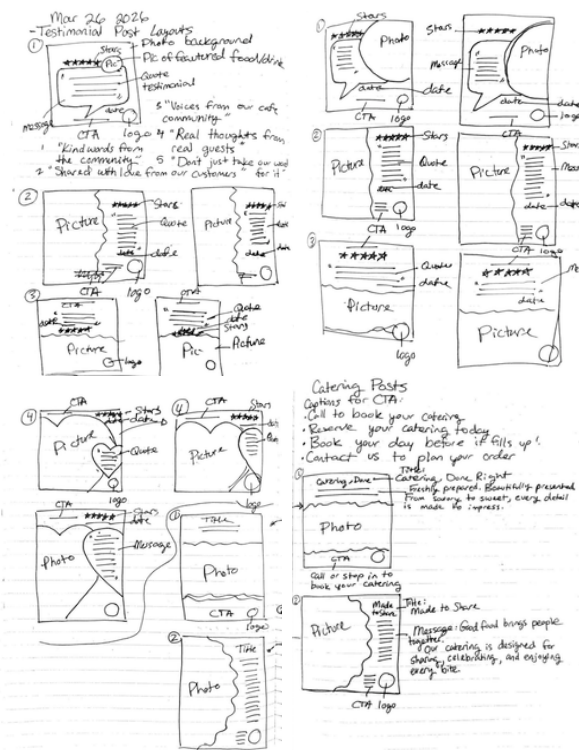 Mar 26 2026
- Testimonial Post Layouts
①
Stars
Photo background
Pic
Pic of featured food/drink
Quote
testimonial
date
message
CTA
logo
3 "Voices from our cafe
community"
4 "Real thoughts from
real guests"
1 "Kind words from
the community"
5 "Don't just take our word
for it"
2 "Shared with love from our customers"
②
Picture
Stars
Quote
date
CTA
logo
Picture
date
③
CTA
date
Quote
date
Stars
Picture
logo
CTA
Pic
Picture
①
Stars
Photo
Message
date
date
CTA
logo
Stars
Photo
date
date
logo
②
Picture
Stars
Quote
date
CTA
logo
Picture
date
date
CTA
logo
③
Quote
date
Picture
logo
date
Picture
④
CTA
Stars
date
Picture
Quote
logo
④
CTA
Stars
Picture
logo
CTA
Stars
date
Photo
Message
①
Title
Photo
CTA
logo
②
Title
Photo
Catering Posts
Captions for CTA:
• Call to book your catering
• Reserve your catering today
• Book your day before it fills up!
• Contact us to plan your order
①
Catering, Done
Title:
Catering, Done Right
Freshly prepared. Beautifully presented
From savory to sweet, every detail
is made to impress.
Photo
CTA
Call or stop in to
book your catering
②
Picture
Made
to Share
Title:
Made to Share
Message: Good food brings people
together.
Our catering is designed for
sharing, celebrating, and enjoying
every bite
CTA
logo